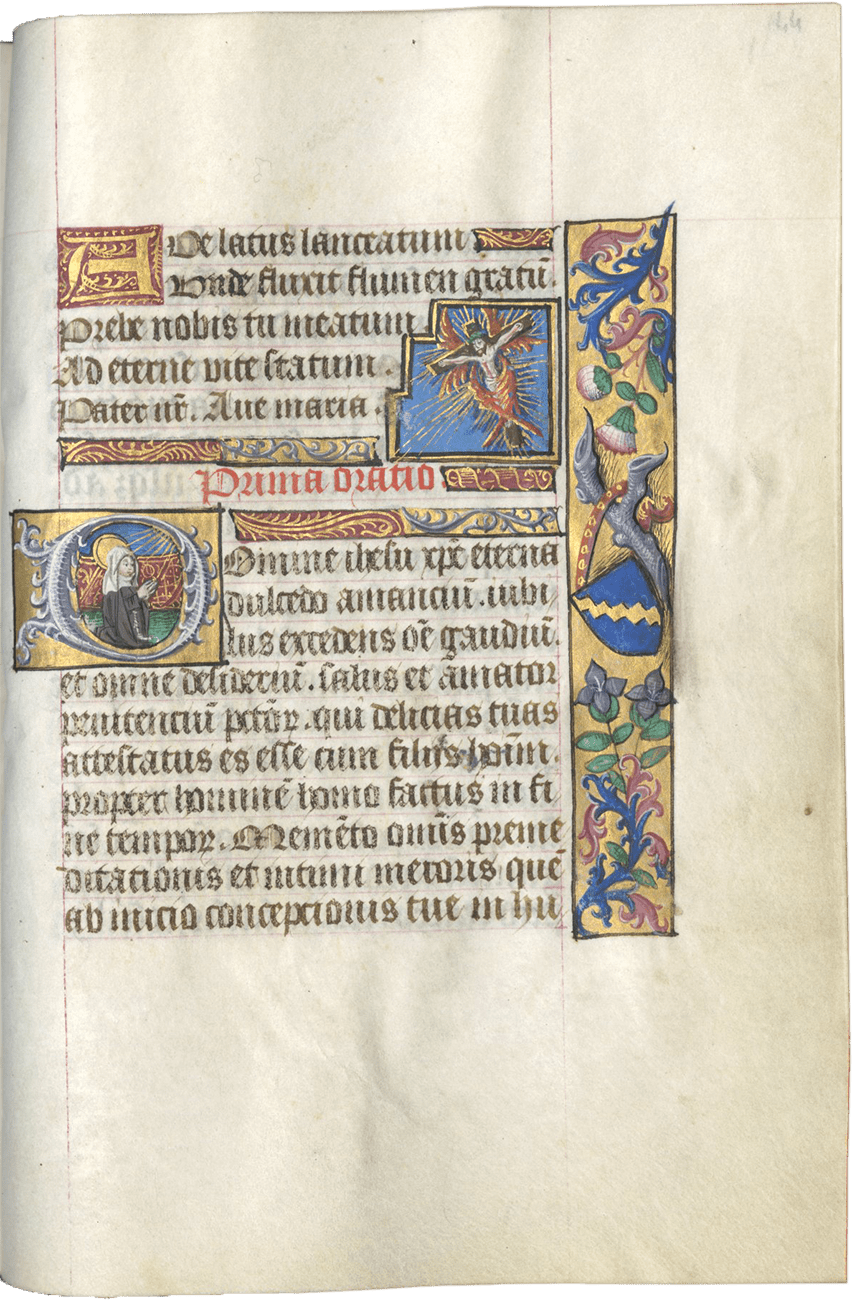 AVe latus lanceatum
Vnde fluxit flumen gratū.
Prebe nobis tu meatum
Ad eterne vite statum.
Pater nr̄. Aue maria.
Prima oratio
DOmine ihesu xp̄e eterna
dulcedo amanciū. iubi
lus excedens oē gaudiū.
et omne desideriū. salus et amator
penitenciū pctōꝝ. qui delicias tuas
attestatus es esse cum filijs hoīm.
propter hominē homo factus in fi
ne tempoꝝ. Memēto omīs preme
ditationis et intimi meroris quē
ab inicio conceptionis tue in hu